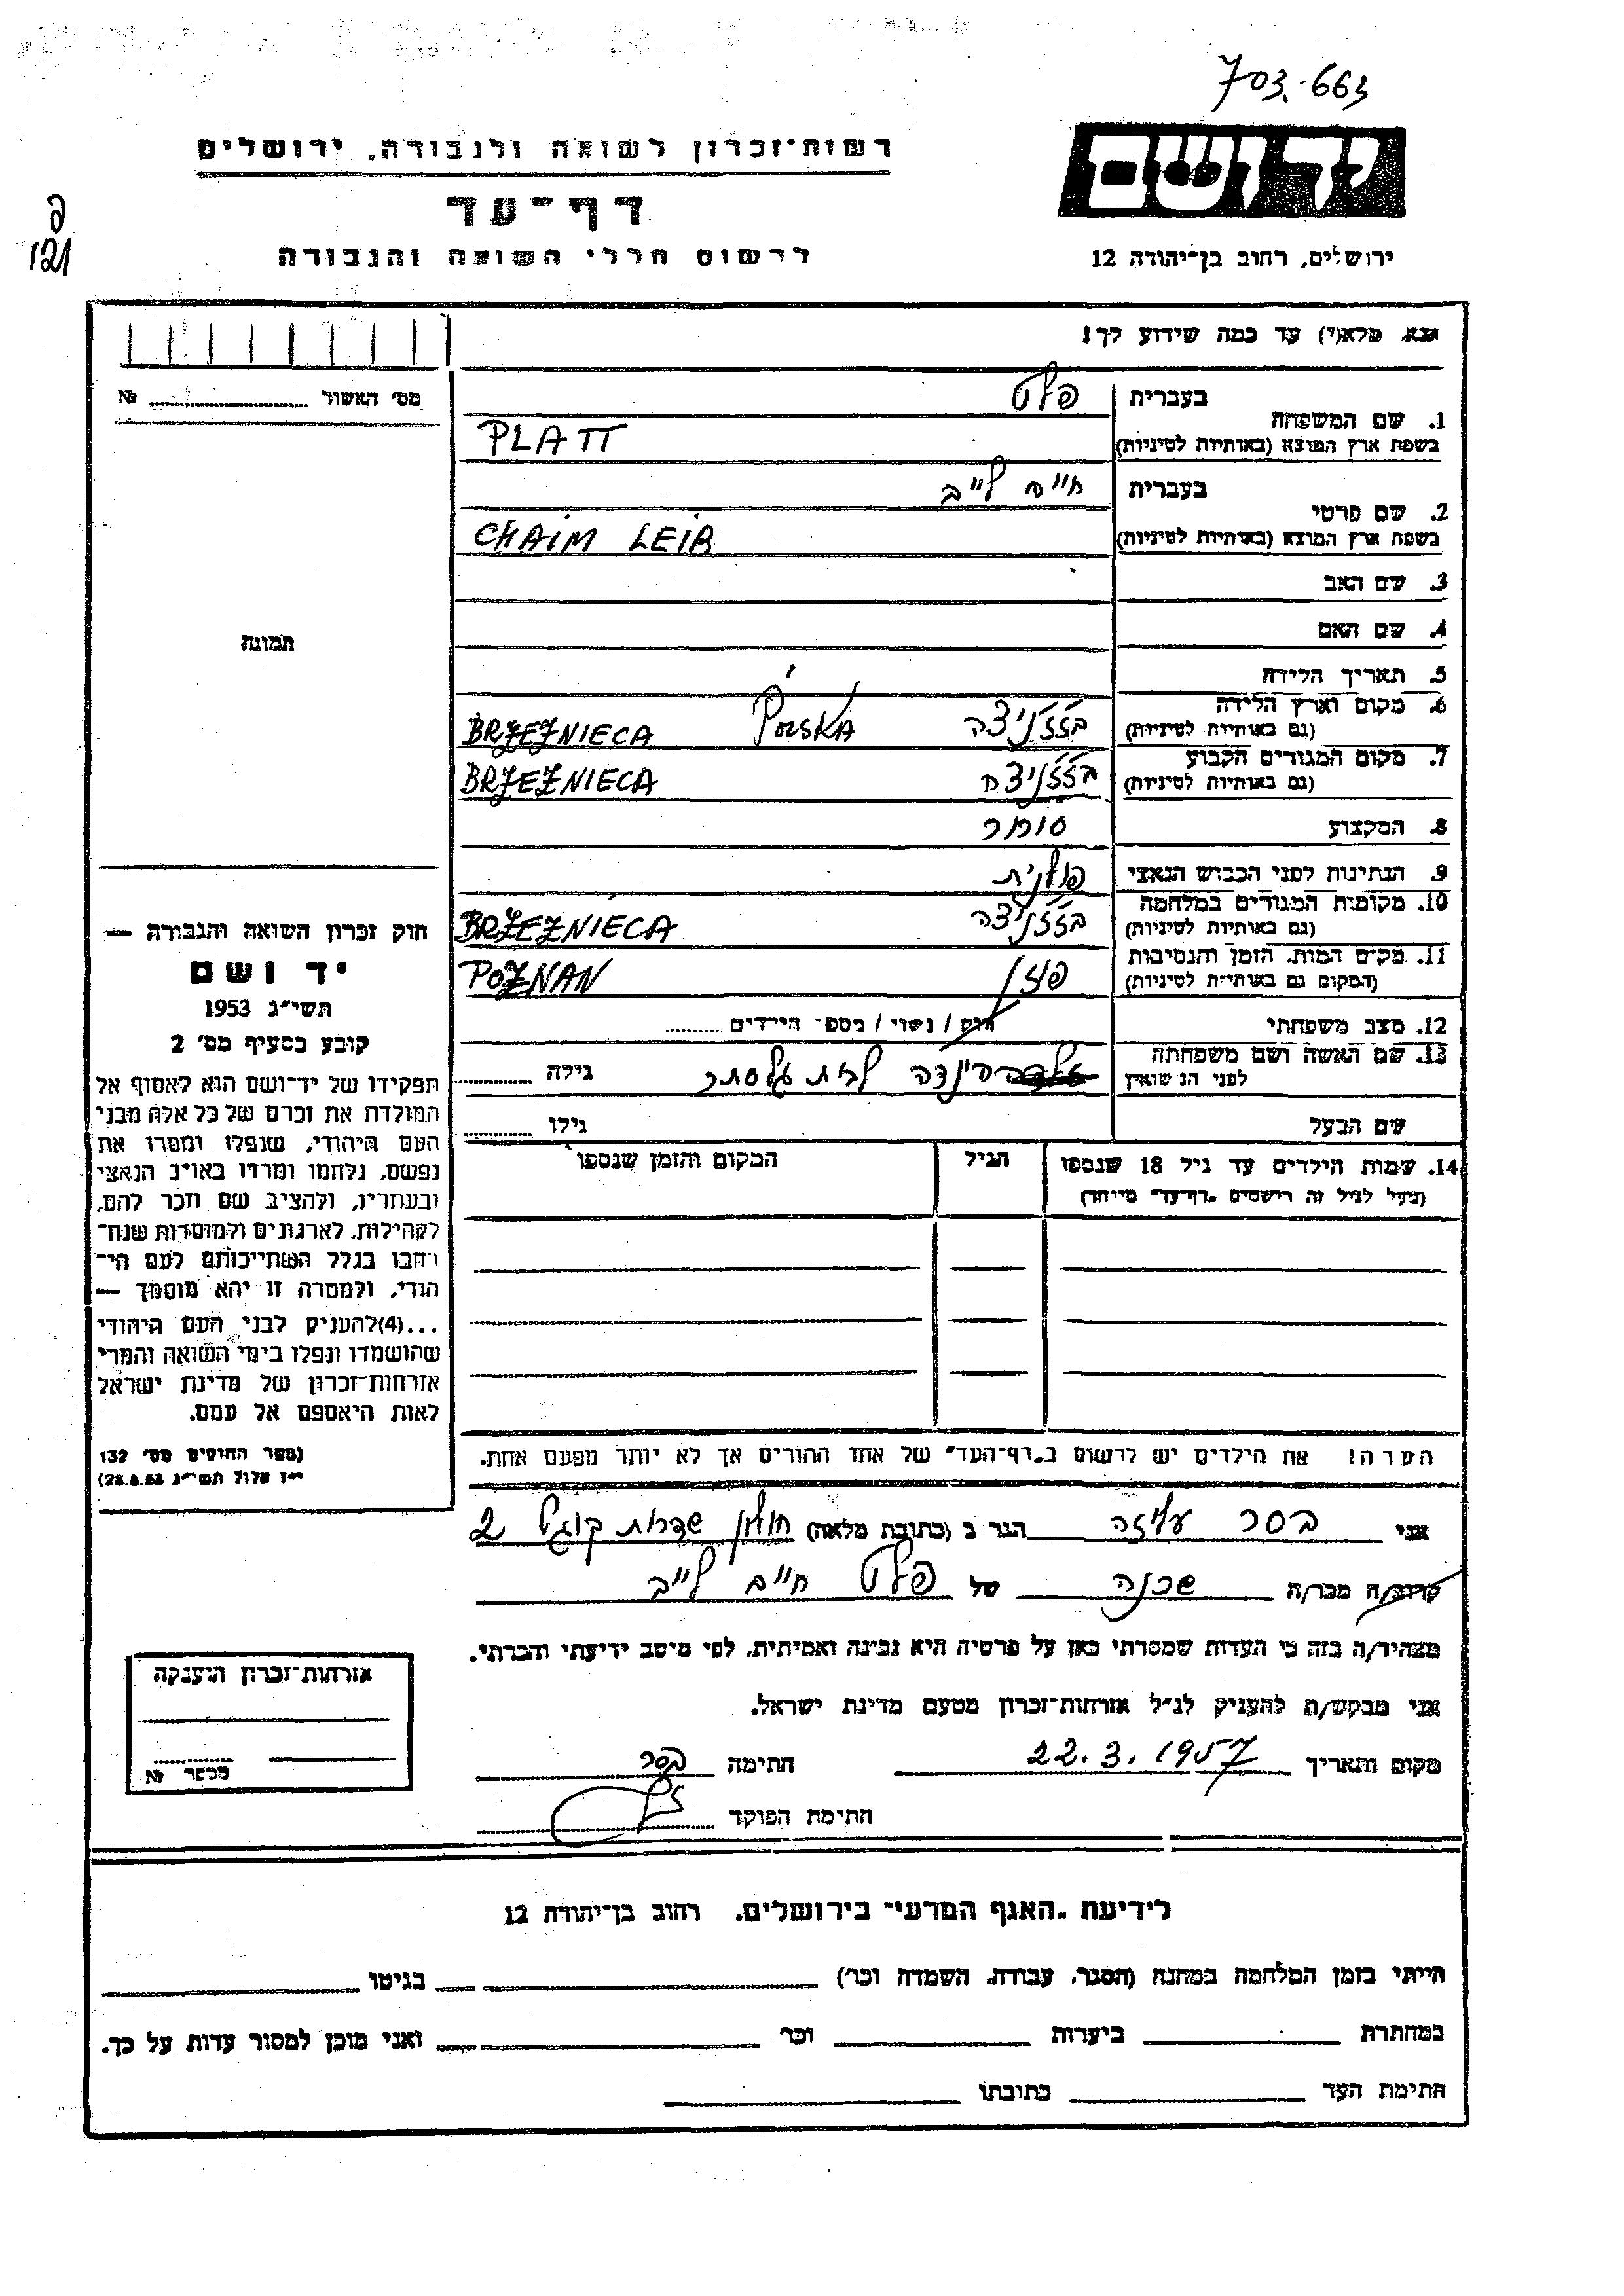 703.663
רשות־זכרון לשואה ולגבורה, ירושלים
יד ושם
דף־עד
פ
121
לרשום חללי השואה והגבורה
ירושלים, רחוב בן־יהודה 12
נא מלא(י) עד כמה שידוע לך!
מס' האשור № 
1. שם המשפחה
בעברית פלט
בשפת ארץ המוצא (באותיות לטיניות) PLATT
2. שם פרטי
בעברית חיים לייב
בשפת ארץ המוצא (באותיות לטיניות) CHAIM LEIB
3. שם האב
4. שם האם
תמונה
5. תאריך הלידה
6. מקום וארץ הלידה
(גם באותיות לטיניות) בז'ז'ניצה POLSKA BRZEZNIECA
7. מקום המגורים הקבוע
(גם באותיות לטיניות) בז'ז'ניצה BRZEZNIECA
8. המקצוע סוחר
9. הנתינות לפני הכבוש הנאצי פולנית
10. מקומות המגורים במלחמה
(גם באותיות לטיניות) בז'ז'ניצה BRZEZNIECA
11. מקום המות, הזמן והנסיבות
(המקום גם באותיות לטיניות) פוזנן POZNAN
12. מצב משפחתי רווק / נשוי / מספר הילדים
13. שם האשה ושם משפחתה
לפני הנשואין הינדה לבית גלסתר גילה
שם הבעל גילו
14. שמות הילדים עד גיל 18 שנספו הגיל המקום והזמן שנספו
(מעל לגיל זה רושמים "דף־עד" מיוחד)
חוק זכרון השואה והגבורה —
יד ושם
תשי"ג 1953
קובע בסעיף מס' 2
תפקידו של יד־ושם הוא לאסוף אל
המולדת את זכרם של כל אלה מבני
העם היהודי, שנפלו ומסרו את
נפשם, נלחמו ומרדו באויב הנאצי
ובעוזריו, ולהציב שם וזכר להם,
לקהילות, לארגונים ולמוסדות שנח־
רבו בגלל השתייכותם לעם הי־
הודי, ולמטרה זו יהא מוסמך —
...(4) להעניק לבני העם היהודי
שהושמדו ונפלו בימי השואה והמרי
אזרחות־זכרון של מדינת ישראל
לאות היאספם אל עמם.
(ספר החוקים מס' 132
י"ז אלול תשי"ג 28.8.53)
הערה! את הילדים יש לרשום ב"דף־העד" של אחד ההורים אך לא יותר מפעם אחת.
אני בסר עליזה הגר ב (כתובת מלאה) חולון שדרות קוגל 2
קרוב/ה מכר/ה שכנה של פלט חיים לייב
מצהיר/ה בזה כי העדות שמסרתי כאן על פרטיה היא נכונה ואמיתית, לפי מיטב ידיעתי והכרתי.
אני מבקש/ת להעניק לנ"ל אזרחות־זכרון מטעם מדינת ישראל.
מקום ותאריך 22.3.1957 חתימה בסר
חתימת הפוקד
אזרחות־זכרון הוענקה
מספר №
לידיעת "האגף המדעי" בירושלים, רחוב בן־יהודה 12
הייתי בזמן המלחמה במחנה (הסגר, עבודה, השמדה וכו') בגיטו
במחתרת ביערות וכו' ואני מוכן למסור עדות על כך.
חתימת העד כתובתו